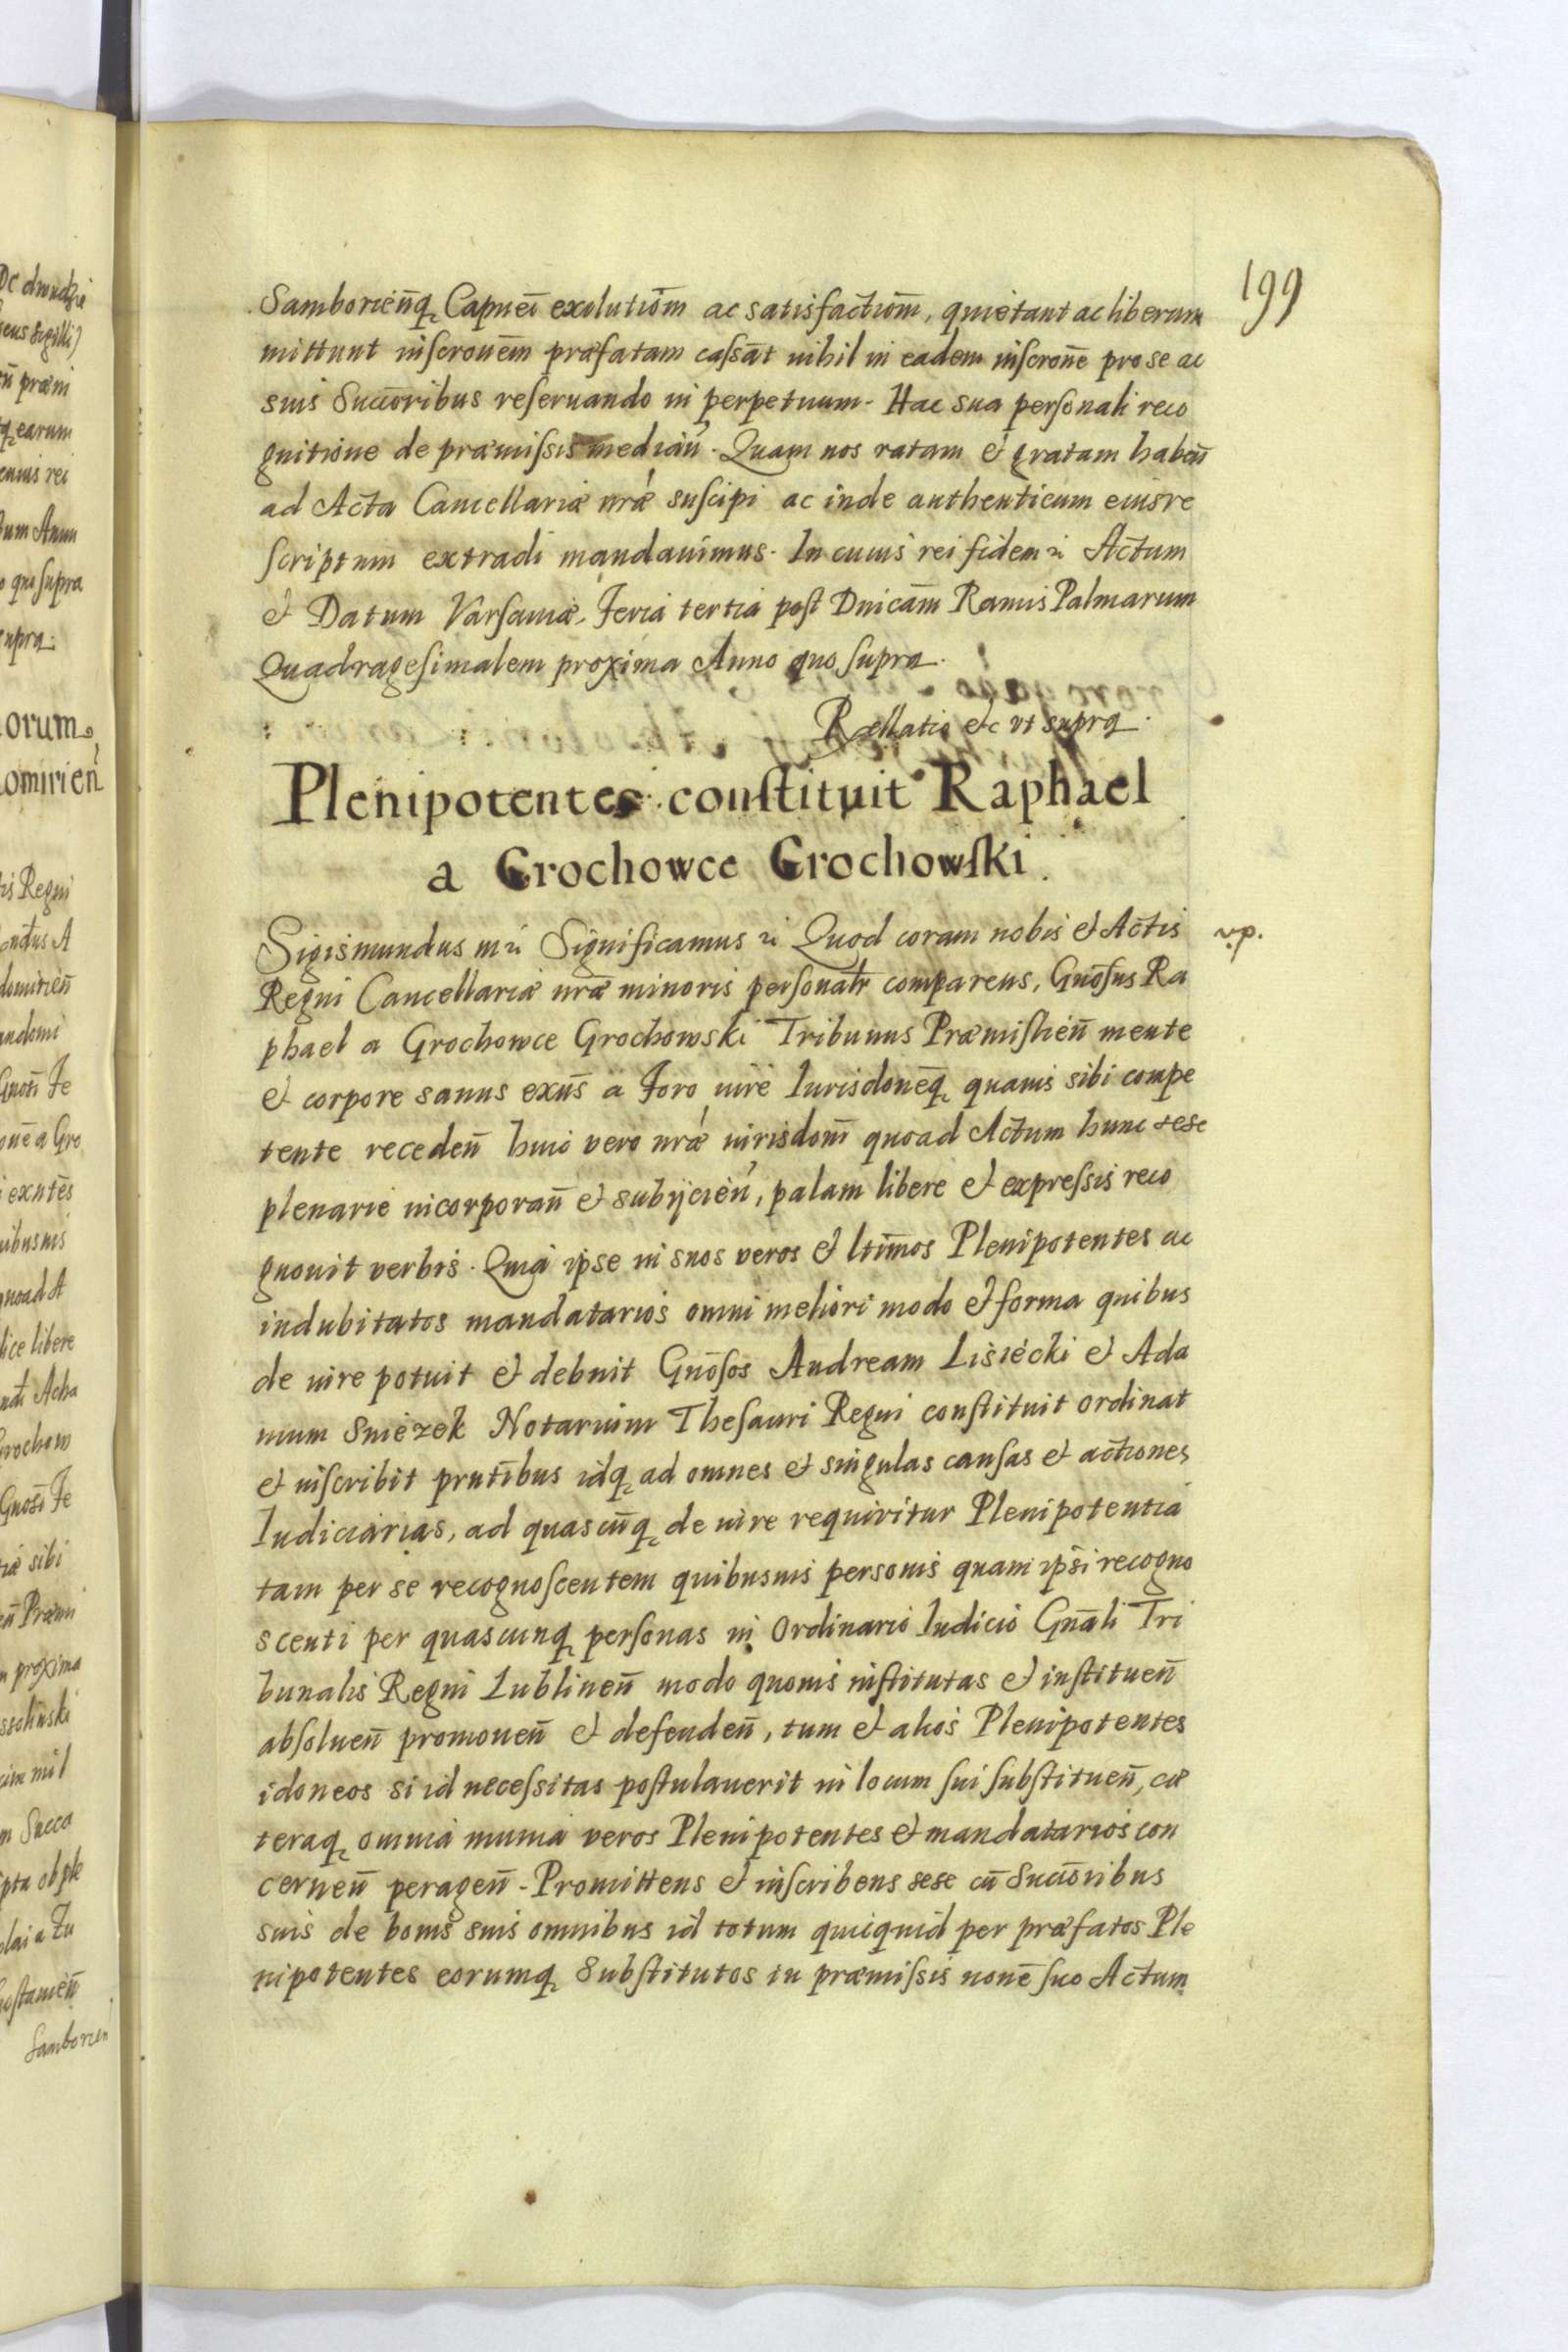 199
Samborieñq Capneı exolutiom̄ ac satisfactiom̄, quietant ac liberum
mittunt inscrouēm præfatam cassāt nihil in eadem inscronē pro se ac
suis Succōribus reservando in perpetuum. Hac sua personali reco
gnitione de præmissis median̄. Quam nos ratam et gratam haben̄
ad Acta Cancellariæ nræ suscipi ac inde authenticum eius re
scriptum extradi mandavimus. In cuius rei fidem ꝛc Actum
et Datum Varsaviæ, Feria tertia post Dnicam̄ Ramis Palmarum
Quadragesimalem proxima Anno quo supra.
Rellatio etc vt supra.
Plenipotentes constituit Raphael
a Grochowce Grochowski.
Sigismundus ꝛc Significamus ꝛc Quod coram nobis et Actis
v.p.
Regni Cancellariæ nræ minoris personalr̄ comparens, Gnōsus Ra
phael a Grochowce Grochowski Tribunus Præmislien̄ mente
et corpore sanus exn̄s a Foro iure Iurisdonēq quamis sibi compe
tente receden̄ huic vero nræ iurisdonī quoad Actum hunc sese
plenarie incorporan̄ et subijcien̄, palam libere et expressis reco
gnouit verbis. Quia ipse in suos veros et ltimōs Plenipotentes ac
indubitatos mandatarios omni meliori modo et forma quibus
de iure potuit et debuit Gnōsos Andream Lisiecki et Ada
mum Sniezek Notarium Thesauri Regni constituit ordinat
et inscribit prntībus idq ad omnes et singulas causas et actiones
Iudiciarias, ad quascun̄q de iure requiritur Plenipotentia
tam per se recognoscentem quibusuis personis quam ipsī recogno
scenti per quascunq personas in Ordinario Iudicio Gnāli Tri
bunalis Regni Lublinen̄ modo quouis institutas et instituen̄
absoluen̄ promouen̄ et defenden̄, tum et alios Plenipotentes
idoneos si id necessitas postulauerit in locum sui substituen̄, cæ
teraq omnia munia veros Plenipotentes et mandatarios con
cernen̄ peragen̄. Promittens et inscribens sese cū Succōribus
suis de bonis suis omnibus id totum quicquid per præfatos Ple
nipotentes eorumq Substitutos in præmissis nonē suo Actum